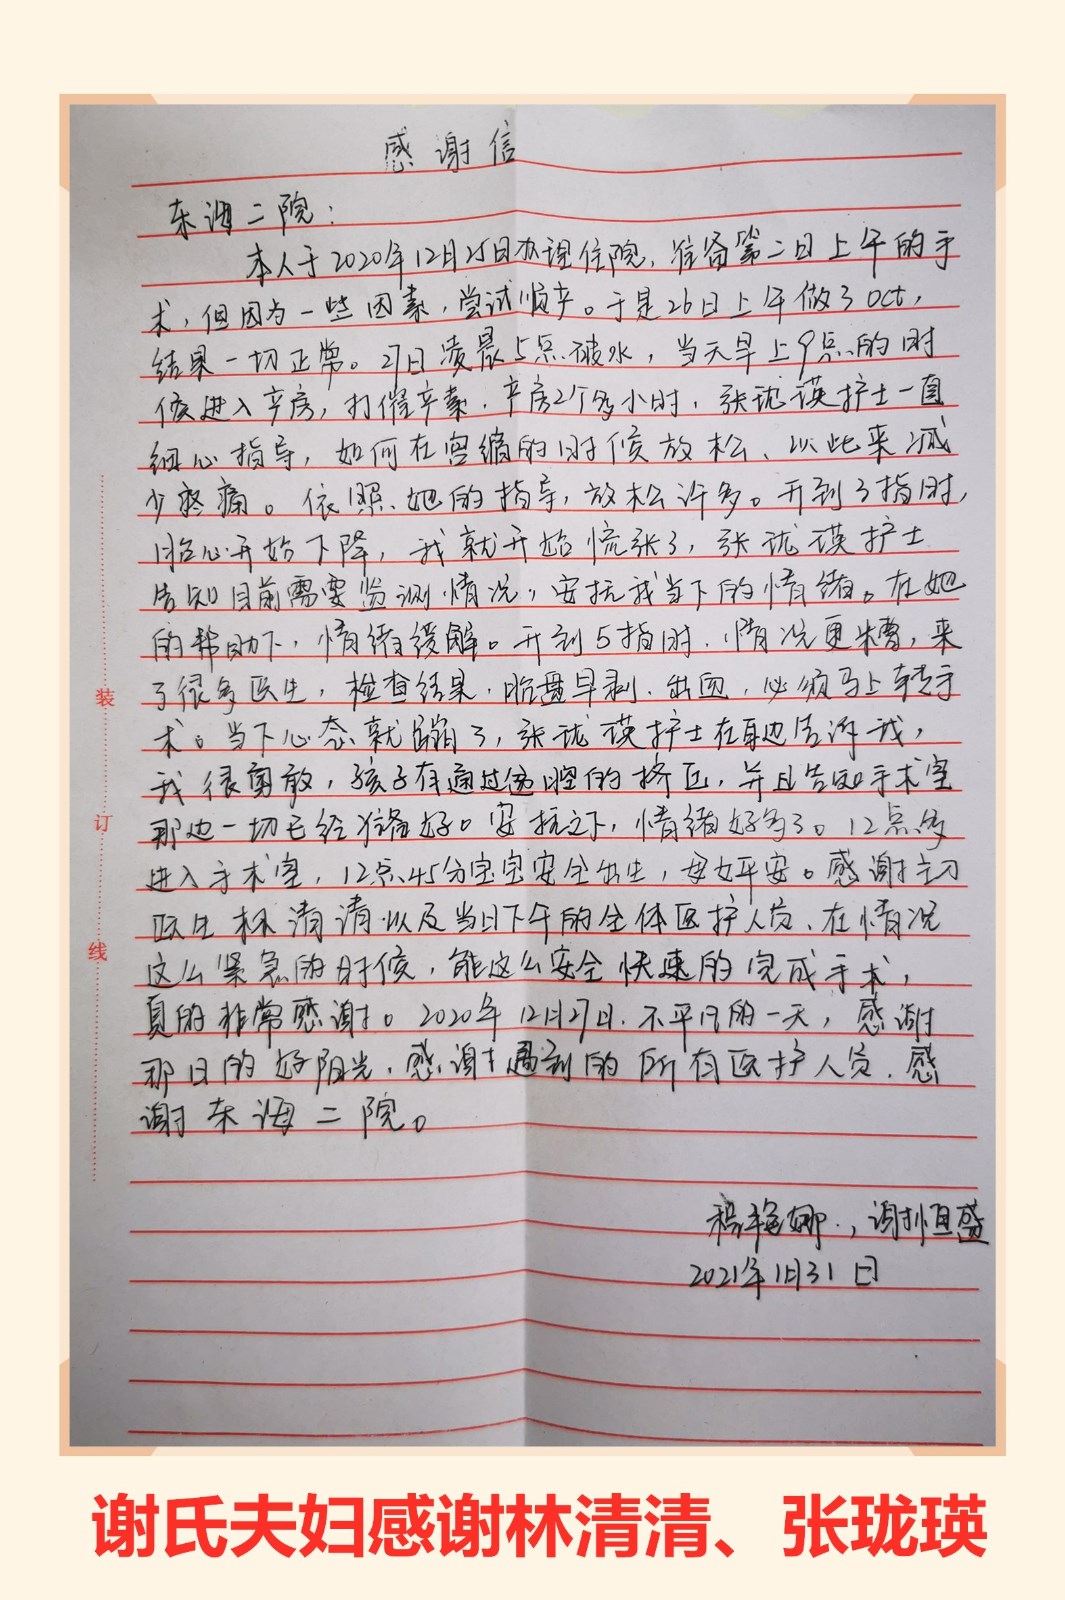 感谢信
东海二院：
本人于2020年12月25日办理住院，准备第二日上午的手
术，但因为一些因素，尝试顺产。于是26日上午做了oct，
结果一切正常。27日凌晨5点破水，当天早上9点的时
候进入产房，打催产素，产房2个多小时，张珑瑛护士一直
细心指导，如何在宫缩的时候放松、以此来减
少疼痛。依照她的指导，放松许多。开到3指时，
胎心开始下降，我就开始慌张了，张珑瑛护士
告知目前需要监测情况，安抚我当下的情绪。在她
的帮助下，情绪缓解。开到5指时，情况更糟，来
了很多医生，检查结果，胎盘早剥、出血，必须马上转手
术。当下心态就崩了，张珑瑛护士在身边告诉我，
我很勇敢，孩子有通过宫腔的挤压，并且告知手术室
那边一切已经准备好。安抚之下，情绪好多了。12点多
进入手术室，12点45分宝宝安全出生，母女平安。感谢主刀
医生林清清以及当日下午的全体医护人员、在情况
这么紧急的时候，能这么安全快速的完成手术，
真的非常感谢。2020年12月27日，不平凡的一天，感谢
那日的好阳光，感谢遇到的所有医护人员，感
谢东海二院。
梅娜，谢恒盛
2021年1月31日
装
订
线
谢氏夫妇感谢林清清、张珑瑛